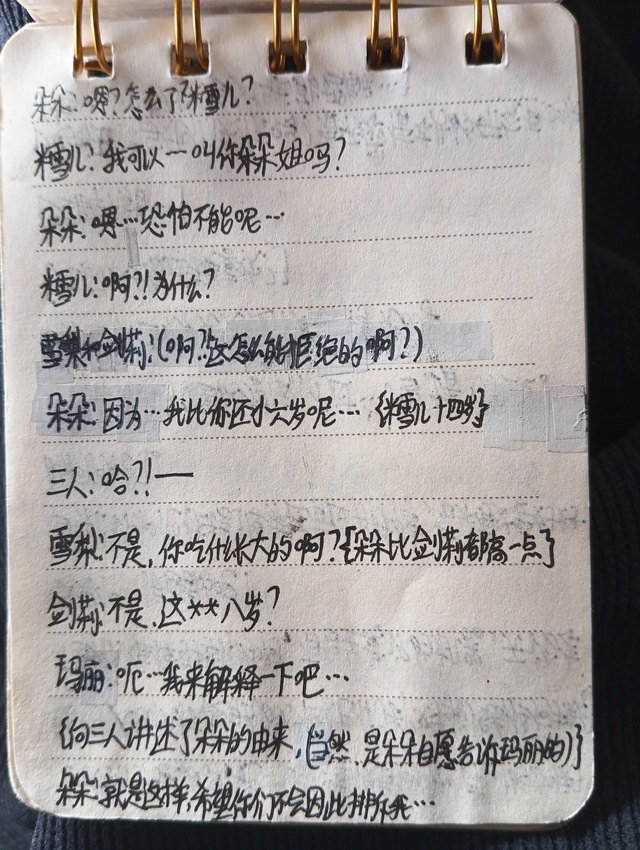 朵朵:嗯?怎么了?糖雪儿?
糖雪儿:我可以一叫你朵朵姐吗?
朵朵:嗯…恐怕不能呢…
糖雪儿:啊?!为什么?
雪梨和剑莉:(啊?这怎么能拒绝的啊?)
朵朵:因为…我比你还小六岁呢… {糖雪儿十四岁}
三人:哈?!——
雪梨:不是,你吃什么长大的啊?{朵朵比剑莉都高一点}
剑莉:不是,这**八岁?
玛丽:呃…我来解释一下吧…
{向三人讲述了朵朵的由来,(当然,是朵朵自愿告诉玛丽的)}
朵朵:就是这样,希望你们不会因此排斥我…